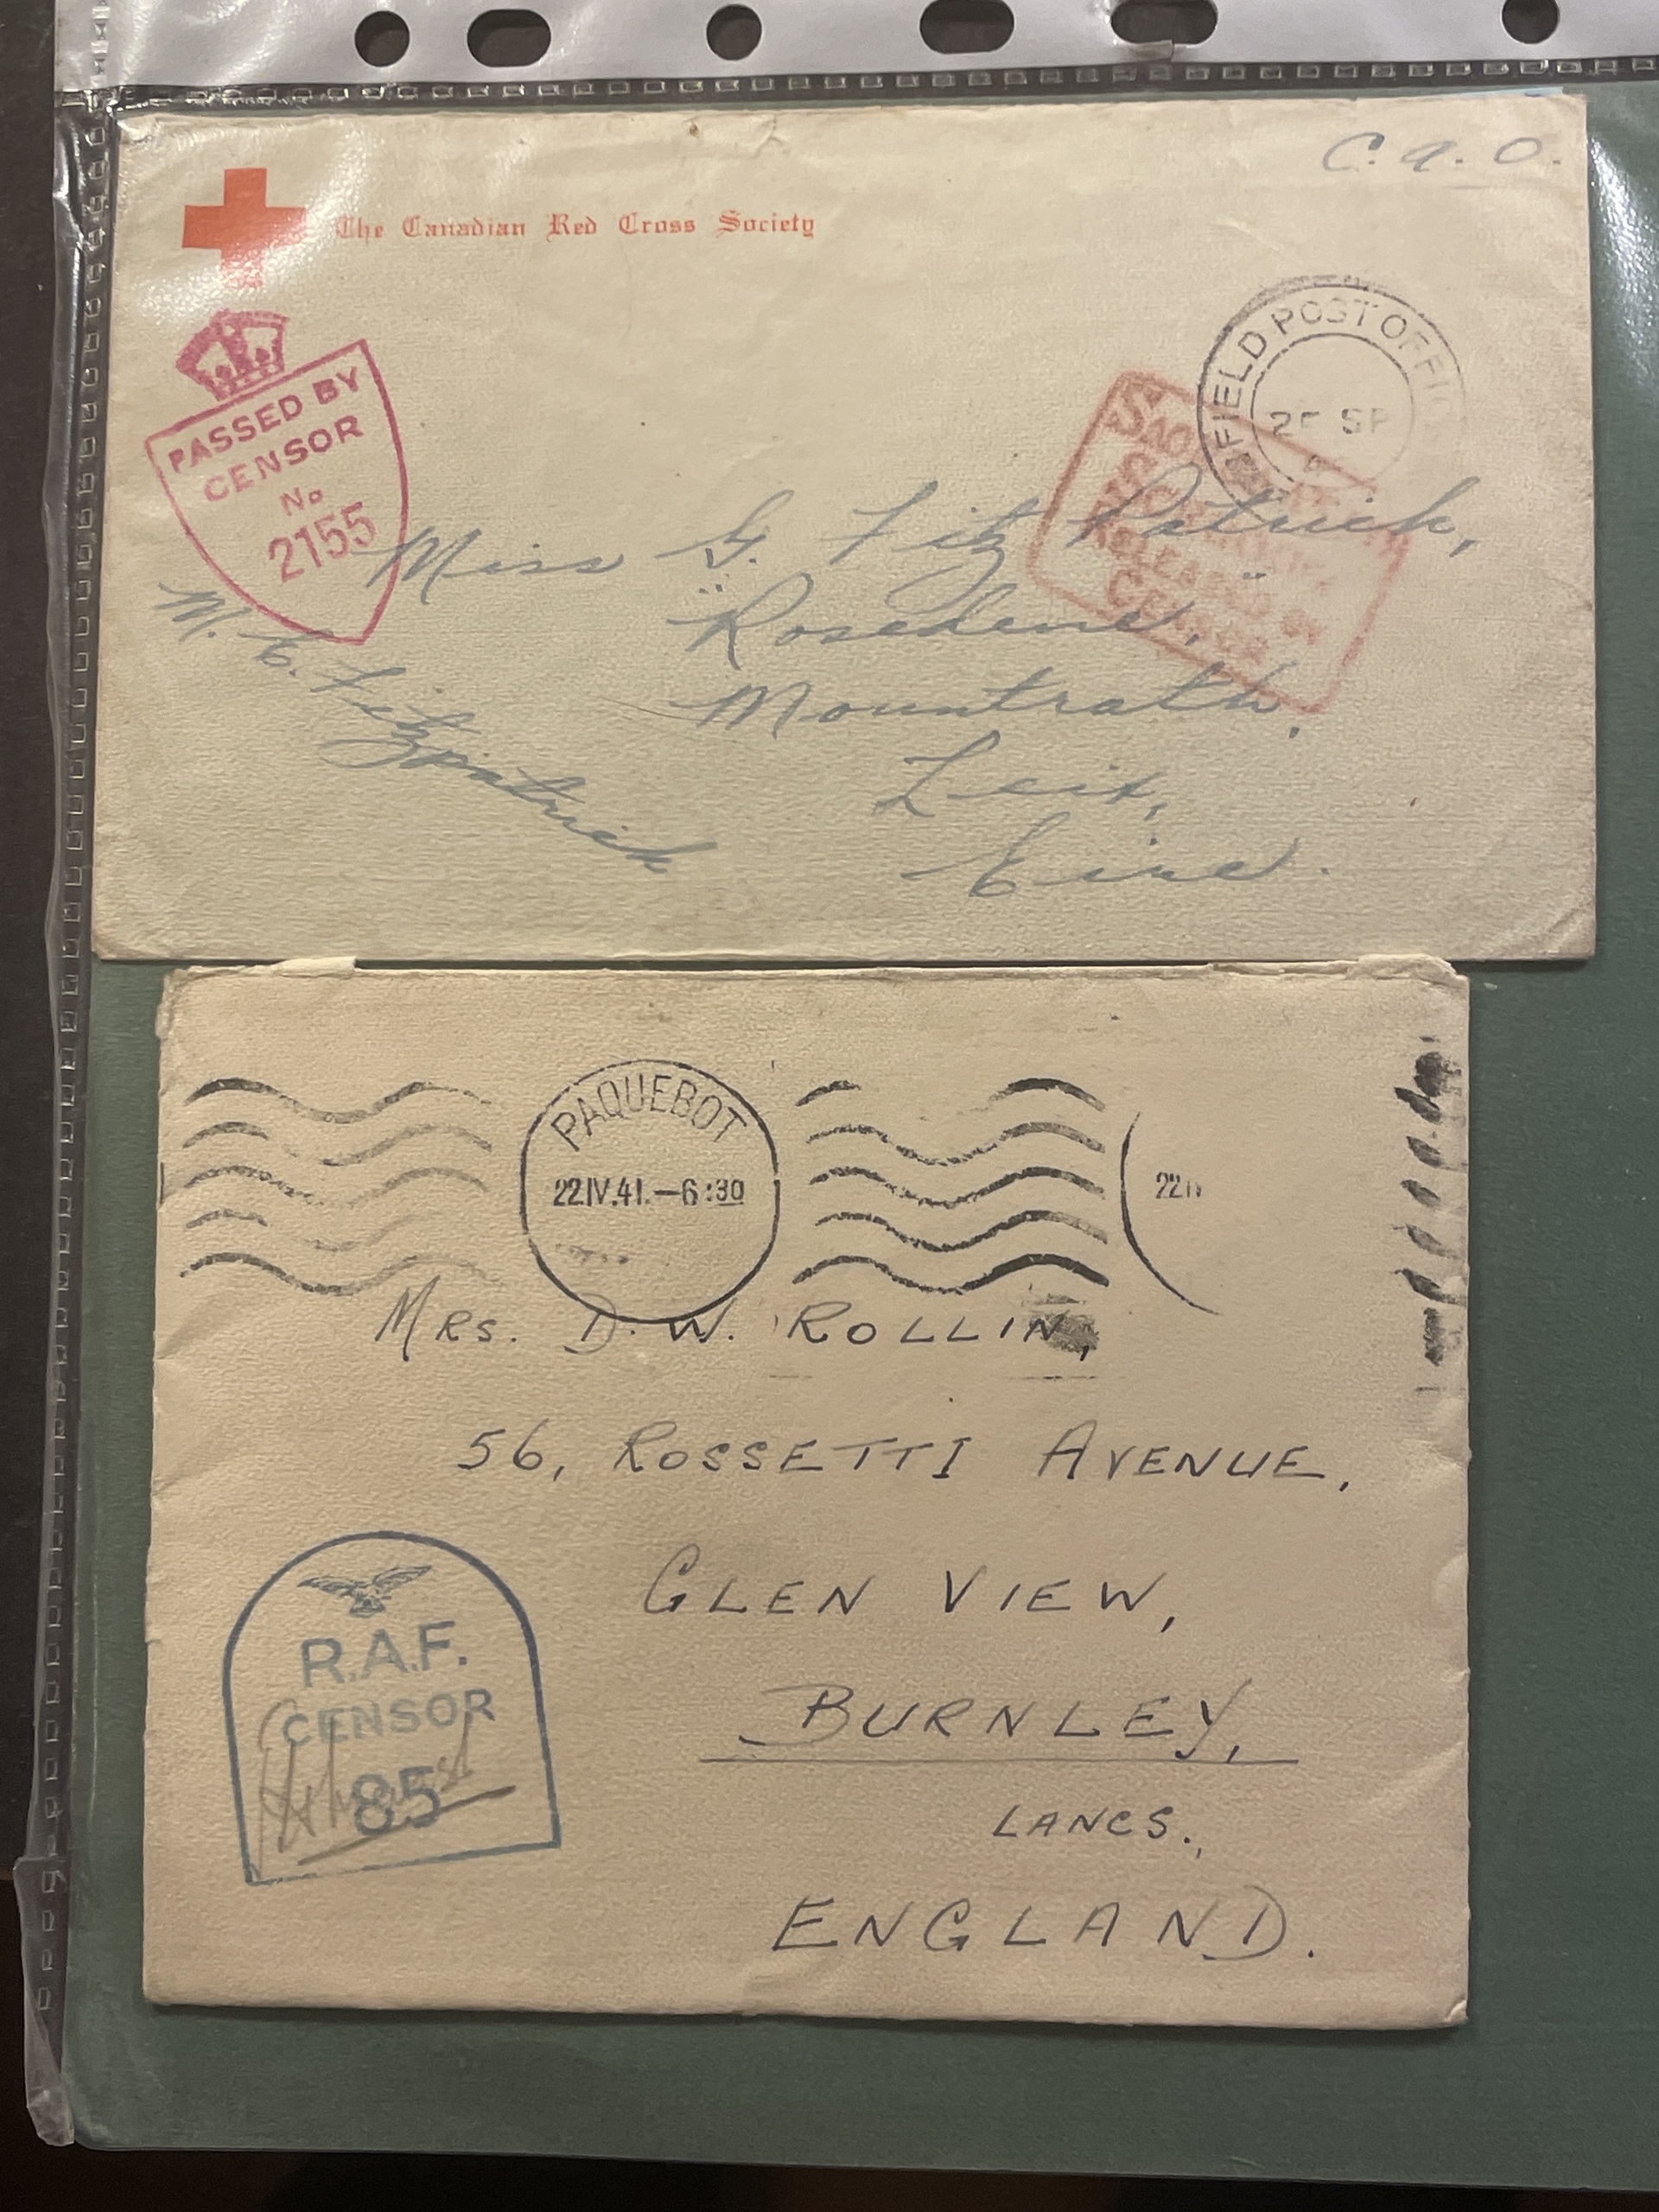 C. A. O.
The Canadian Red Cross Society
FIELD POST OFFIC
SE
PASSED BY
CENSOR
No
2155
RELEASED BY
CENSOR
Miss G. Fitz Patrick,
"Rosedene",
Mountrath,
Leix,
Eire.
M. C. Fitzpatrick
PAQUEBOT
22.IV.41.—6:30
22.IV
MRS. D. W. ROLLIN,
56, ROSSETTI AVENUE,
GLEN VIEW,
BURNLEY,
LANCS.,
ENGLAND.
R.A.F.
CENSOR
85